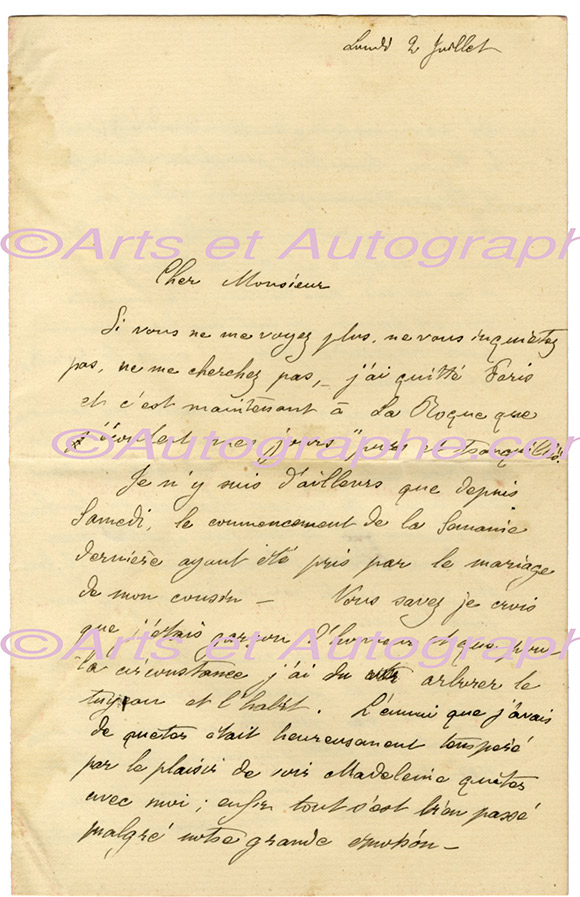 Lundi 2 Juillet
©Arts et Autographe
Cher Monsieur
Si vous ne me voyez plus, ne vous inquiétez
pas, ne me cherchez pas, _ j'ai quitté Paris
et c'est maintenant à La Roque que
"s'écoulent mes jours" purs et tranquilles.
©Arts et Autographe.co
Je n'y suis d'ailleurs que depuis
Samedi, le commencement de la Semaine
dernière ayant été pris par le mariage
de mon cousin _ Vous savez je crois
que j'étais garçon d'honneur et que pour
©Arts et Autographe
la circonstance j'ai du arborer le
tuyau et l'habit. L'ennui que j'avais
de quêter était heureusement tempéré
par le plaisir de voir Madeleine quêter
avec moi ; enfin tout s'est bien passé
malgré notre grande émotion _